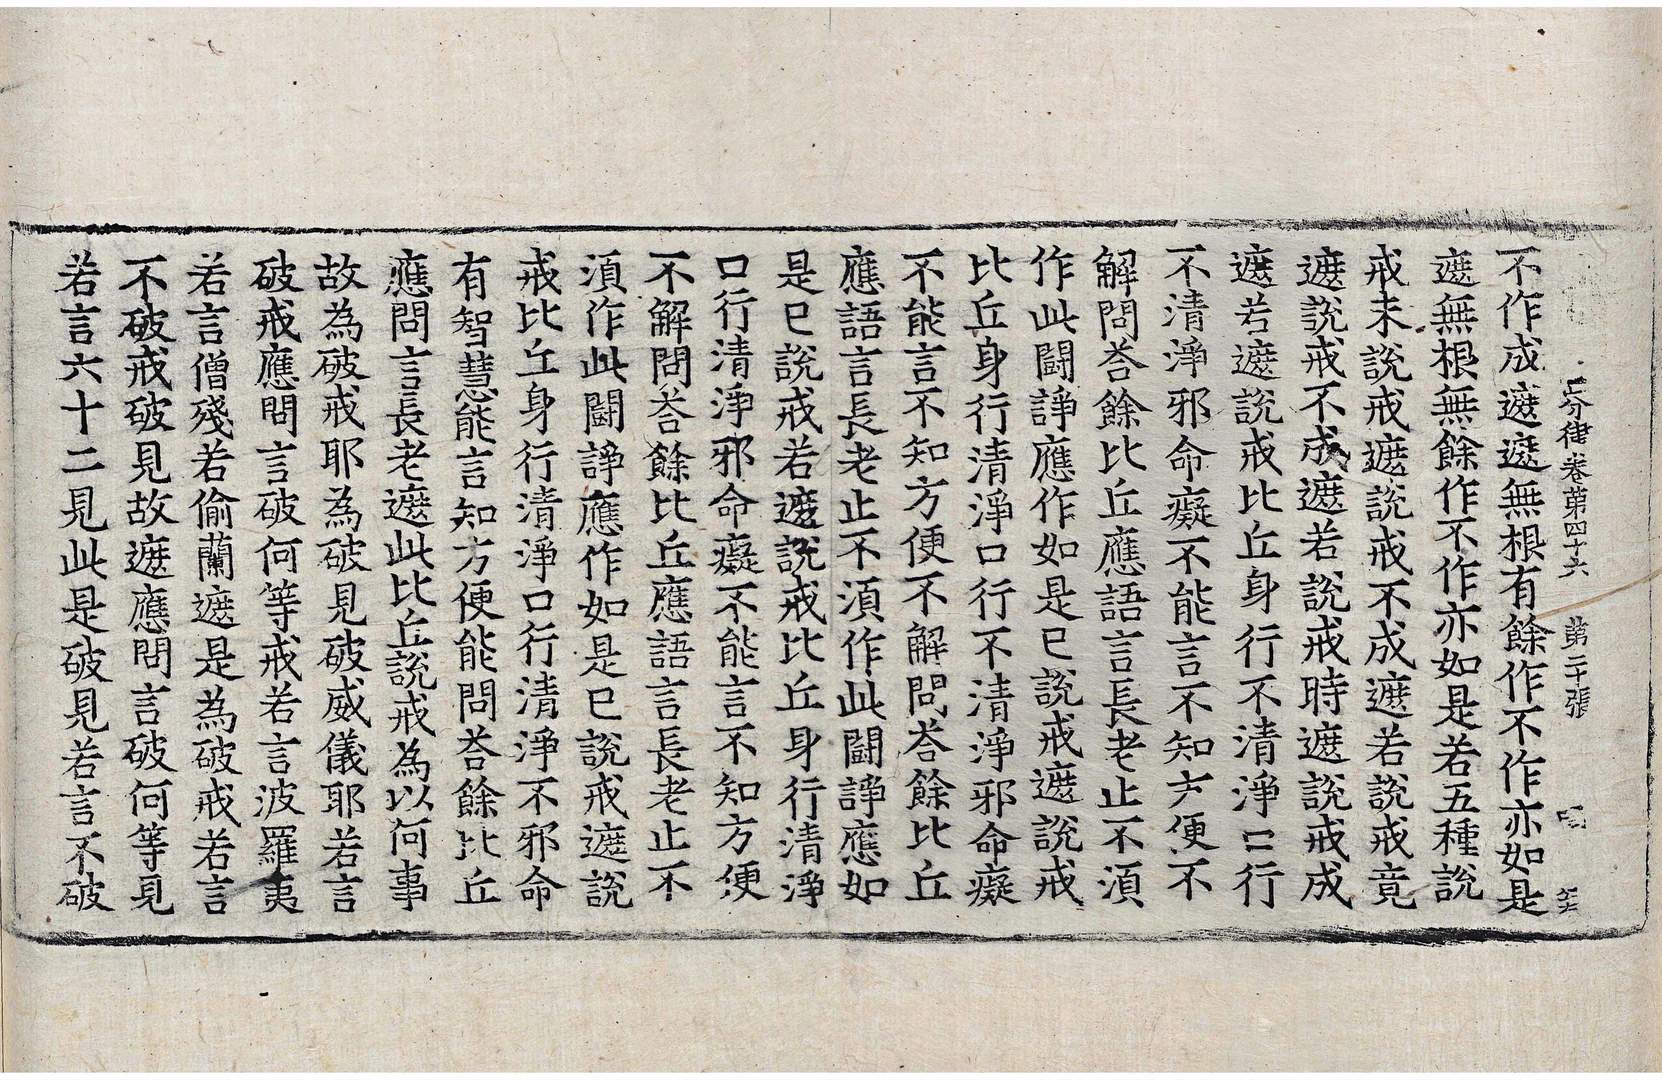 四分律卷第四十六 第二十張
不作成遮遮無根有餘作不作亦如是
遮無根無餘作不作亦如是若五種說
戒未說戒遮說戒不成遮若說戒竟
遮說戒不成遮若說戒時遮說戒成
遮若遮說戒比丘身行不清淨口行
不清淨邪命癡不能言不知方便不
解問荅餘比丘應語言長老止不湏
作此鬪諍應作如是已說戒遮說戒
比丘身行清淨口行不清淨邪命癡
不能言不知方便不解問荅餘比丘
應語言長老止不湏作此鬪諍應如
是已說戒若遮說戒比丘身行清淨
口行清淨邪命癡不能言不知方便
不解問荅餘比丘應語言長老止不
湏作此鬪諍應作如是已說戒遮說
戒比丘身行清淨口行清淨不邪命
有智慧能言知方便能問荅餘比丘
應問言長老遮此比丘說戒為以何事
故為破戒耶為破見破威儀耶若言
破戒應問言破何等戒若言波羅夷
若言僧殘若偷蘭遮是為破戒若言
不破戒破見故遮應問言破何等見
若言六十二見此是破見若言不破